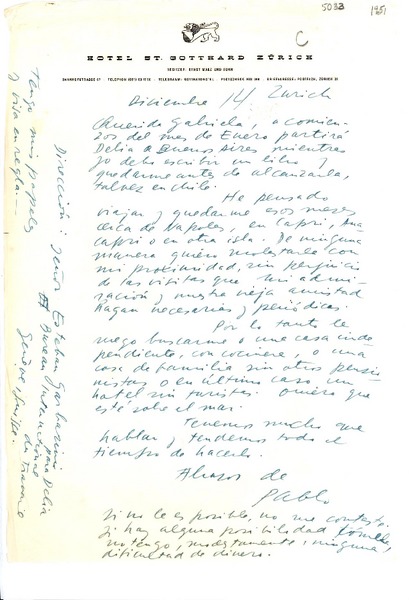 5033
C
HOTEL ST. GOTTHARD ZÜRICH
BESITZER: ERNST MANZ UND SOHN
Diciembre 14. Zurich
Querida Gabriela, a comien-
zos del mes de Enero partirá
Delia a Buenos Aires mientras
yo debo escribir un libro y
quedarme antes de alcanzarla,
talvez en Chile.
He pensado
viajar y quedarme esos meses
cerca de Napoles, en Capri, Ana
capri o en otra isla. De ninguna
manera quiero molestarla con
mi proximidad, sin perjuicio
de las visitas que mi admi-
ración y nuestra vieja amistad
hagan necesarias y periódicas.
Por lo tanto le
ruego buscarme o una casa inde-
pendiente, con cocinera, o una
casa de familia sin otros pensio-
nistas o en último caso un
hotel sin turistas. Quiero que
esté sobre el mar.
Tenemos mucho que
hablar y tendemos todo el
tiempo de hacerlo.
Abrazos de
Pablo
Si no le es posible, no me conteste.
Si hay alguna posibilidad,
no tengo, modestamente, ninguna
dificultad de dinero.
Dirección: Señor Esteban
para Delia
Bureau International
du Travail
Genève, Suiza.
Tengo mis papeles
y visa en regla.